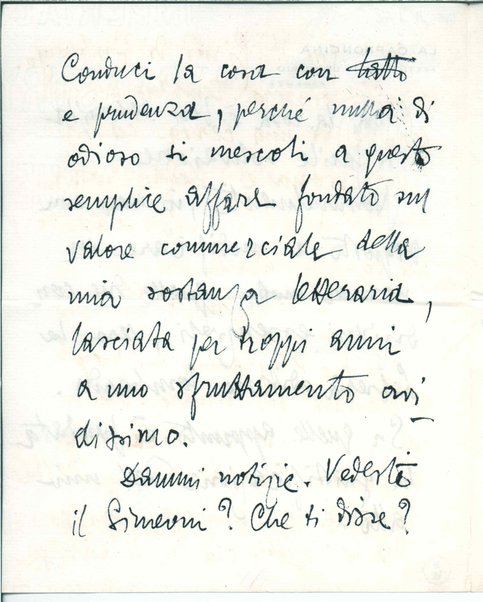 Conduci la cosa con tatto
e prudenza, perché nulla di
odioso si mescoli a questo
semplice affare fondato sul
valore commerciale della
mia sostanza letteraria,
lasciata per troppi anni
a uno sfruttamento avi
dissimo.
Dammi notizie. Vedesti
il Simeoni? Che ti disse?